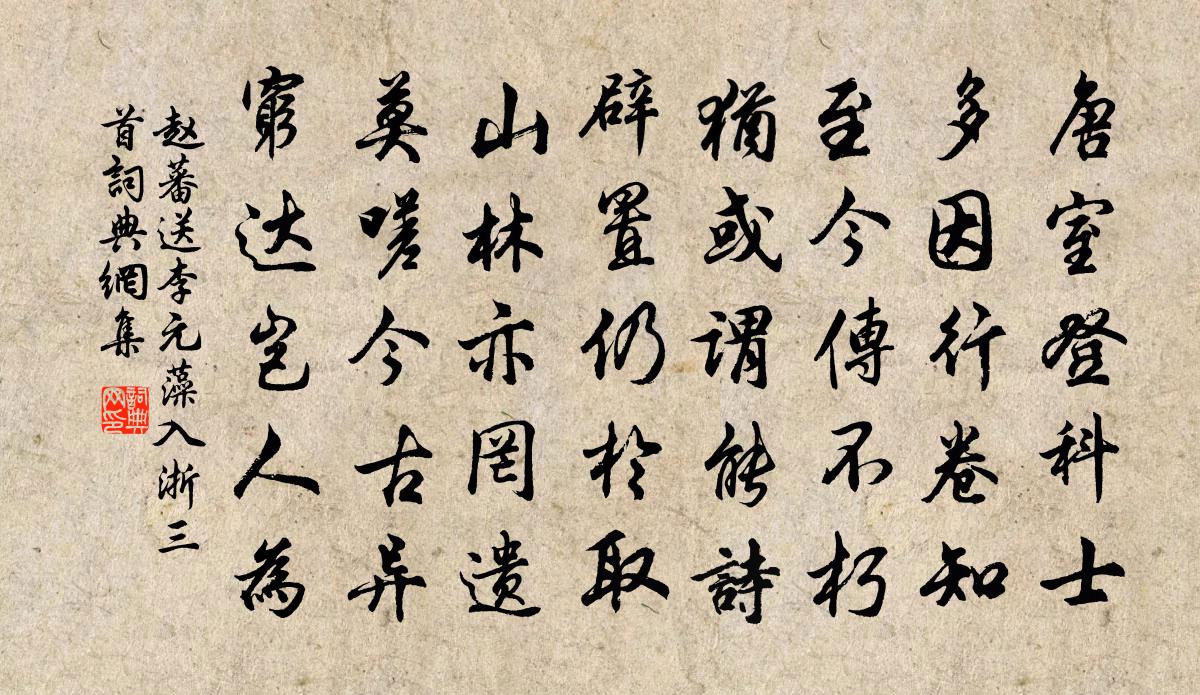 唐室登科士
多因行卷知
至今傳不朽
猶或謂能詩
辟置仍於取
山林亦罔遗
莫嗟今古异
窮达岂人為
赵蕃送李元藻入浙三
首詞典網集
詞典
网印